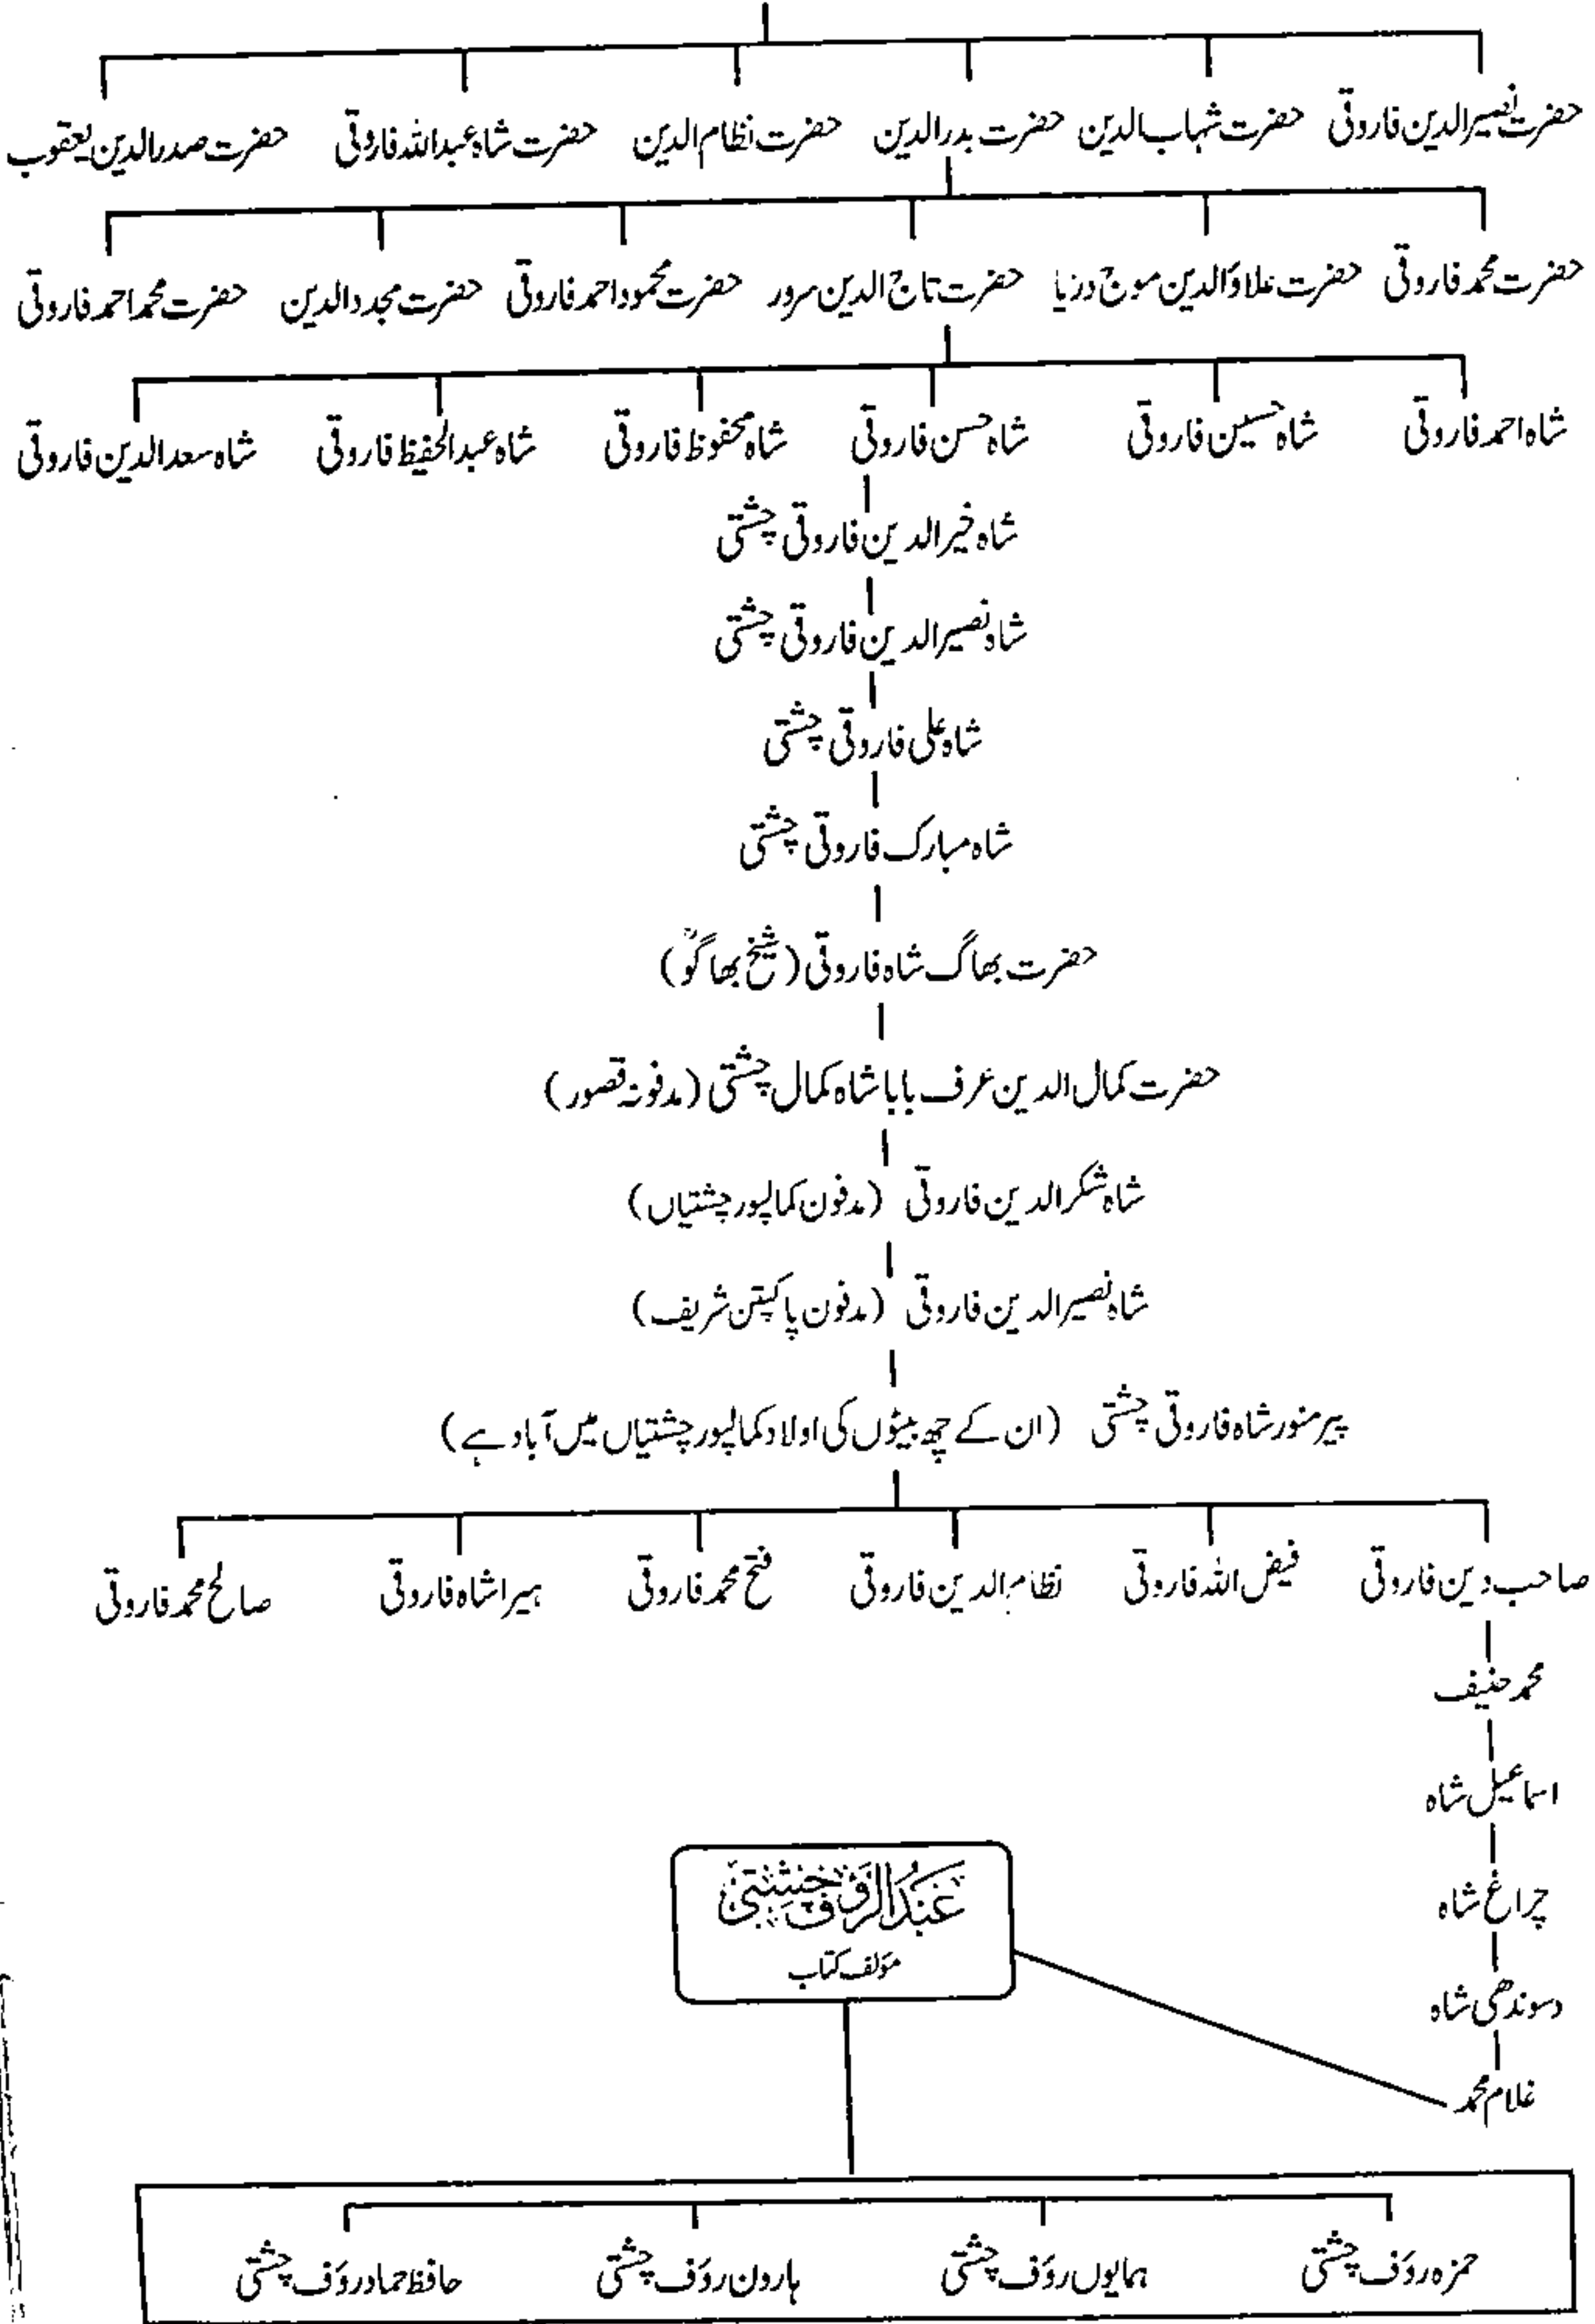 حضرت نصیرالدین فاروقی حضرت شہاب الدین حضرت بدرالدین حضرت نظام الدین حضرت شاہ عبداللہ فاروقی حضرت صدرالدین یعقوب
حضرت محمد فاروقی حضرت علاؤالدین موج دریا حضرت تاج الدین سرور حضرت محمود احمد فاروقی حضرت مجدد الدین حضرت محمد احمد فاروقی
شاہ احمد فاروقی شاہ حسین فاروقی شاہ حسن فاروقی شاہ محفوظ فاروقی شاہ عبدالحفیظ فاروقی شاہ سعدالدین فاروقی
شاہ خیرالدین فاروقی چشتی
شاہ نصیرالدین فاروقی چشتی
شاہ علی فاروقی چشتی
شاہ مبارک فاروقی چشتی
حضرت بھاگ شاہ فاروقی (شیخ بھاگوؒ)
حضرت کمال الدین عرف بابا شاہ کمال چشتی (مدفونہ قصور)
شاہ شکرالدین فاروقی (مدفون کمالپور چشتیاں)
شاہ نصیرالدین فاروقی (مدفون پاکپتن شریف)
پیر منور شاہ فاروقی چشتی (ان کے چھ بیٹوں کی اولاد کمالپور چشتیاں میں آباد ہے)
صاحب دین فاروقی فیض اللہ فاروقی نظام الدین فاروقی فتح محمد فاروقی ہیرا شاہ فاروقی صالح محمد فاروقی
محمد حنیف
اسماعیل شاہ
چراغ شاہ
دسوندھی شاہ
غلام محمد
عبدالرؤف چشتی
مؤلف کتاب
حمزہ رؤف چشتی ہمایوں رؤف چشتی ہارون رؤف چشتی حافظ حماد رؤف چشتی